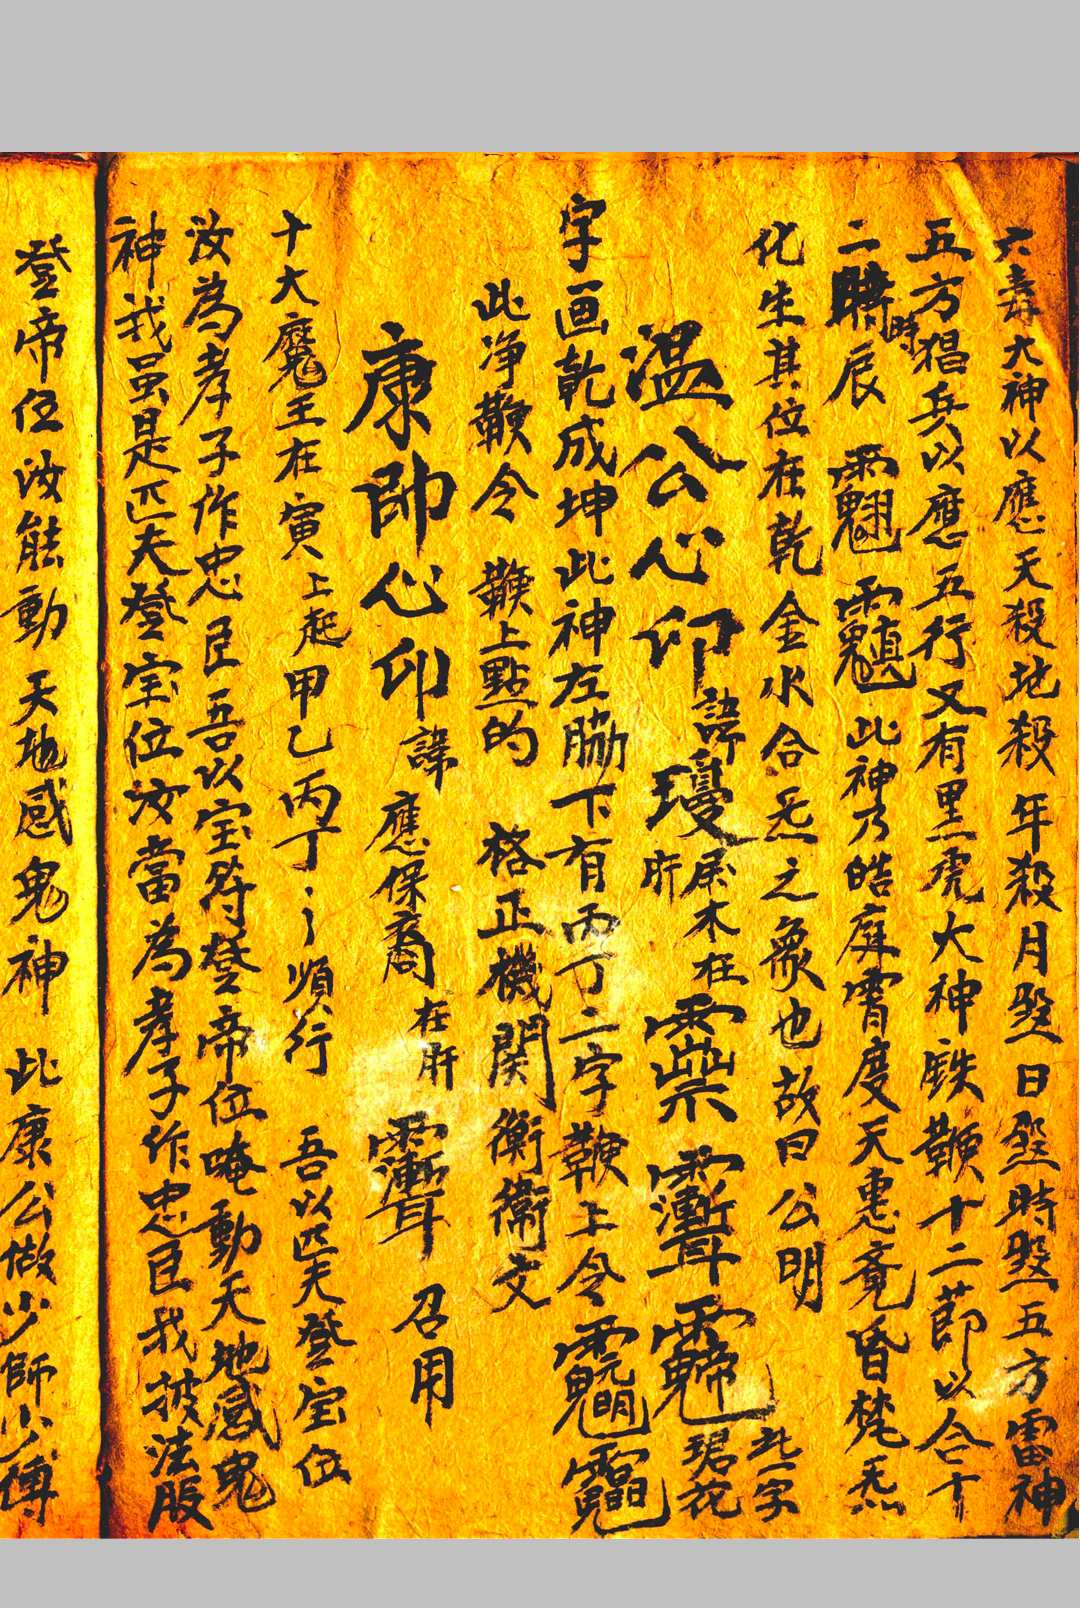 六毒大神以應天殺地殺年殺月煞日煞時煞五方雷神
五方猖兵以應五行又有黑虎大神鉄鞭十二節以合十
二時時辰 此神乃皓庭霄度天惠竟昏梵炁
化生其位在乾金水合炁之象也故曰公明
溫公心印 諱 瓊 屬木在肝 此字琚花
字画乾成坤此神左脇下有丙丁二字鞭上令
此净鞭令 鞭上點的 格正機関衡衛文
康帥心印 諱 應保裔 在肝 召用
十大魔王在寅上起甲乙丙丁〻順行 吾以匹夫登宝位
汝為孝子作忠臣吾以宝符登帝位唵動天地感鬼
神我虽是匹夫登宝位汝當為孝子作忠臣我披法服
登帝位汝能動天地感鬼神 此康公做少師少傅